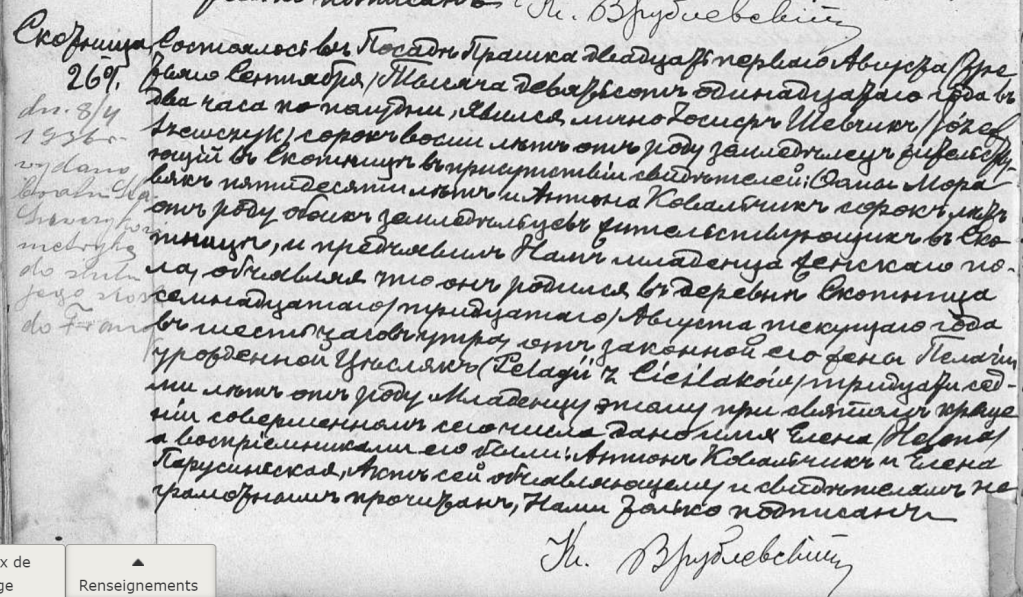 подписанъ. Кс. Врублевскій
Скотница
269.
dn. 8/4
1936 r
wydano
metrykę
do ślubu
jego
do
Состоялось въ Посадѣ Прашка двадцать перваго Августа (тре
тьяго Сентября) Тысяча девятьсотъ одинадцатаго года въ
два часа по полудни, Явился лично Іосифъ Шевчикъ (Józef
Szewczyk) сорокъ восьми лѣтъ отъ роду земледѣлецъ жительству
ющій въ Скотницѣ въ присутствіи свидѣтелей: Ѳомы Мора
вякъ пятидесяти лѣтъ и Антона Ковальчикъ сорокъ лѣтъ
отъ роду обоихъ земледѣльцевъ жительствующихъ въ Ско
тницѣ, и предъявилъ Намъ младенца женскаго по-
ла, объявляя что онъ родился въ деревнѣ Скотница
семнадцатаго (тридцатаго) Августа текущаго года
въ шесть часовъ утра, отъ законной его жены Пелагіи
урожденной Цѣслякъ (Pelagii z Cieślaków) тридцати сед-
ми лѣтъ отъ роду. Младенцу этому при святомъ креще
ніи совершенномъ сего числа дано имя Елена (Helena)
а воспріемниками его были: Антонъ Ковальчикъ и Елена
Актъ сей объявляющему и свидѣтелямъ не
грамотнымъ прочитанъ, Нами только подписанъ.
Кс. Врублевскій
x de
ge
Renseignements